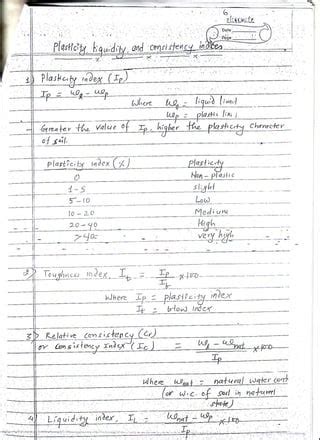 6
Date
Page
Plasticity liquidity and consistency indices
1) Plasticity index (Ip)
Ip = wl - wp
where wl = liquid limit
wp = plastic limit
- Greater the value of Ip, higher the plasticity character
of soil.
Plasticity index (%) Plasticity
0 Non-plastic
1-5 slight
5-10 Low
10-20 Medium
20-40 High
>40 very high
2) Toughness index, It = Ip/If × 100
Where Ip = plasticity index
If = blow index
3) Relative consistency (Cr)
or Consistency Index (Ic) = wl - wnat/Ip × 100
where wnat = natural water cont
(or w.c. of soil in natural
state)
4) Liquidity index, IL = wnat - wp/Ip × 100